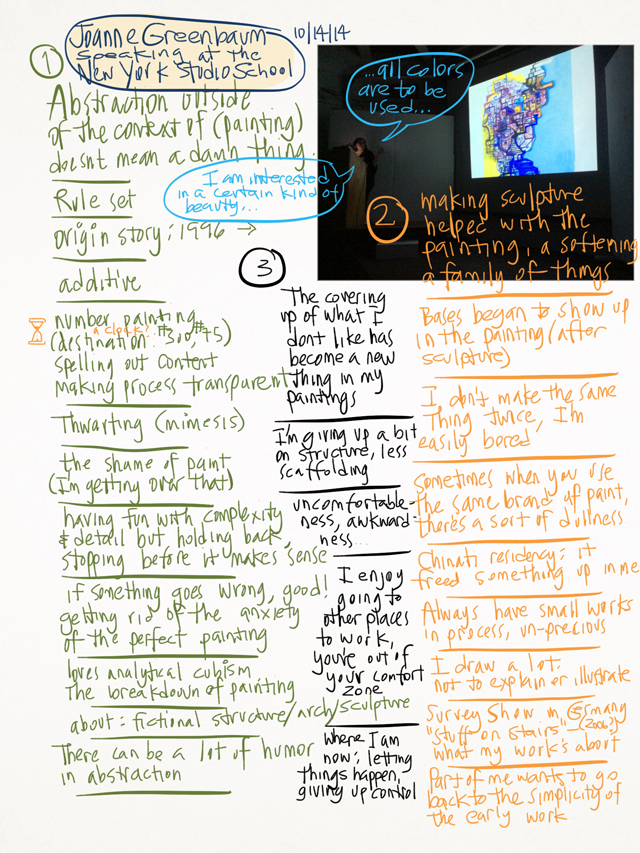 Joanne Greenbaum
speaking at the
New York Studio School
10/14/14
1
Abstraction outside
of the context of (painting)
doesnt mean a damn thing.
Rule set
origin story: 1996 →
additive
number painting
a clock?
(destination: #300, #45)
spelling out content
making process transparent
Thwarting (mimesis)
the shame of paint
(I'm getting over that)
having fun with complexity
& detail but holding back,
stopping before it makes sense
if something goes wrong, good!
getting rid of the anxiety
of the perfect painting
loves analytical cubism
The breakdown of painting
about: fictional structure/arch/sculpture
There can be a lot of humor
in abstraction
...all colors
are to be
used...
I am interested
in a certain kind of
beauty...
2
making sculpture
helped with the
painting, a softening
a family of things
Bases began to show up
in the painting (after
sculpture)
I don't make the same
Thing twice, I'm
easily bored
Sometimes when you use
the same brand of paint,
there's a sort of dullness
Chinati residency: it
freed something up in me
Always have small works
in process, un-precious
I draw a lot.
not to explain or illustrate
Survey Show in Germany
"stuff on stairs" (2006?)
what my work's about
Part of me wants to go
back to the simplicity of
the early work
3
The covering
up of what I
dont like has
become a new
thing in my
paintings
I'm giving up a bit
on structure, less
scaffolding
uncomfortable-
ness, awkward-
ness...
I enjoy
going to
other places
to work,
you're out of
your comfort
zone
where I am
now: letting
things happen,
giving up control